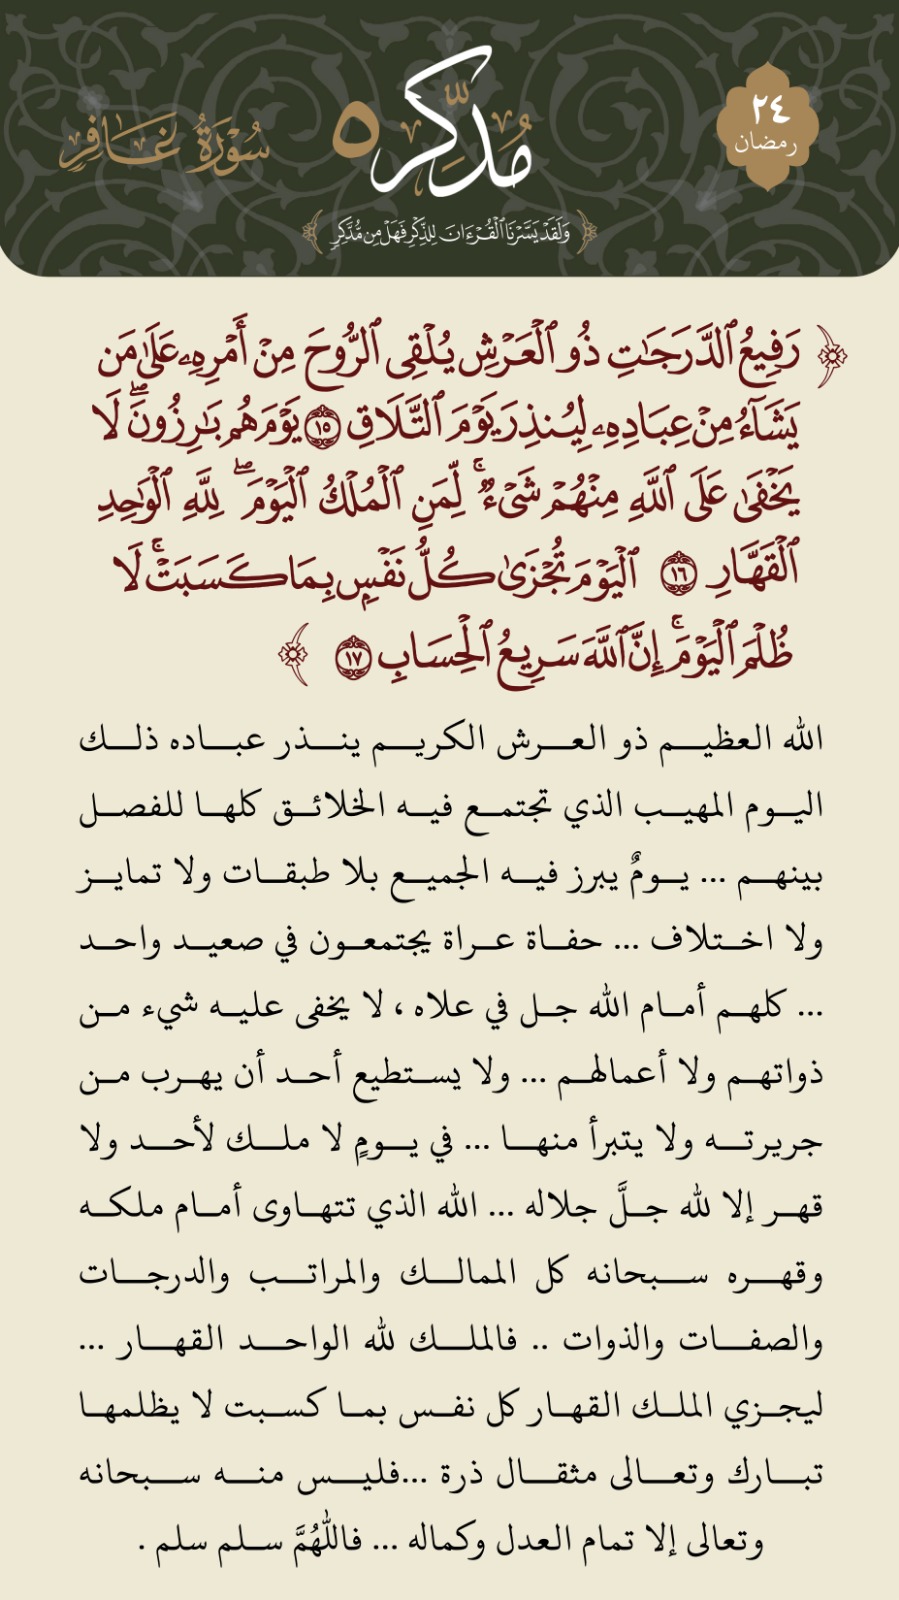 ٢٤
رمضان
مُدَّكِر ٥
سُورَةُ غَافِرٍ
وَلَقَدْ يَسَّرْنَا ٱلْقُرْءَانَ لِلذِّكْرِ فَهَلْ مِن مُّدَّكِرٍ
﴿ رَفِيعُ ٱلدَّرَجَٰتِ ذُو ٱلْعَرْشِ يُلْقِى ٱلرُّوحَ مِنْ أَمْرِهِۦ عَلَىٰ مَن
يَشَآءُ مِنْ عِبَادِهِۦ لِيُنذِرَ يَوْمَ ٱلتَّلَاقِ ١٥ يَوْمَ هُم بَٰرِزُونَۖ لَا
يَخْفَىٰ عَلَى ٱللَّهِ مِنْهُمْ شَىْءٌۚ لِّمَنِ ٱلْمُلْكُ ٱلْيَوْمَۖ لِلَّهِ ٱلْوَٰحِدِ
ٱلْقَهَّارِ ١٦ ٱلْيَوْمَ تُجْزَىٰ كُلُّ نَفْسٍۭ بِمَا كَسَبَتْۚ لَا
ظُلْمَ ٱلْيَوْمَۚ إِنَّ ٱللَّهَ سَرِيعُ ٱلْحِسَابِ ١٧ ﴾
الله العظيم ذو العرش الكريم ينذر عباده ذلك
اليوم المهيب الذي تجتمع فيه الخلائق كلها للفصل
بينهم ... يومٌ يبرز فيه الجميع بلا طبقات ولا تمايز
ولا اختلاف ... حفاة عراة يجتمعون في صعيد واحد
... كلهم أمام الله جل في علاه ، لا يخفى عليه شيء من
ذواتهم ولا أعمالهم ... ولا يستطيع أحد أن يهرب من
جريرته ولا يتبرأ منها ... في يومٍ لا ملك لأحد ولا
قهر إلا لله جلَّ جلاله ... الله الذي تتهاوى أمام ملكه
وقهره سبحانه كل الممالك والمراتب والدرجات
والصفات والذوات .. فالملك لله الواحد القهار ...
ليجزي الملك القهار كل نفس بما كسبت لا يظلمها
تبارك وتعالى مثقال ذرة ...فليس منه سبحانه
وتعالى إلا تمام العدل وكماله ... فاللهُمَّ سلم سلم .